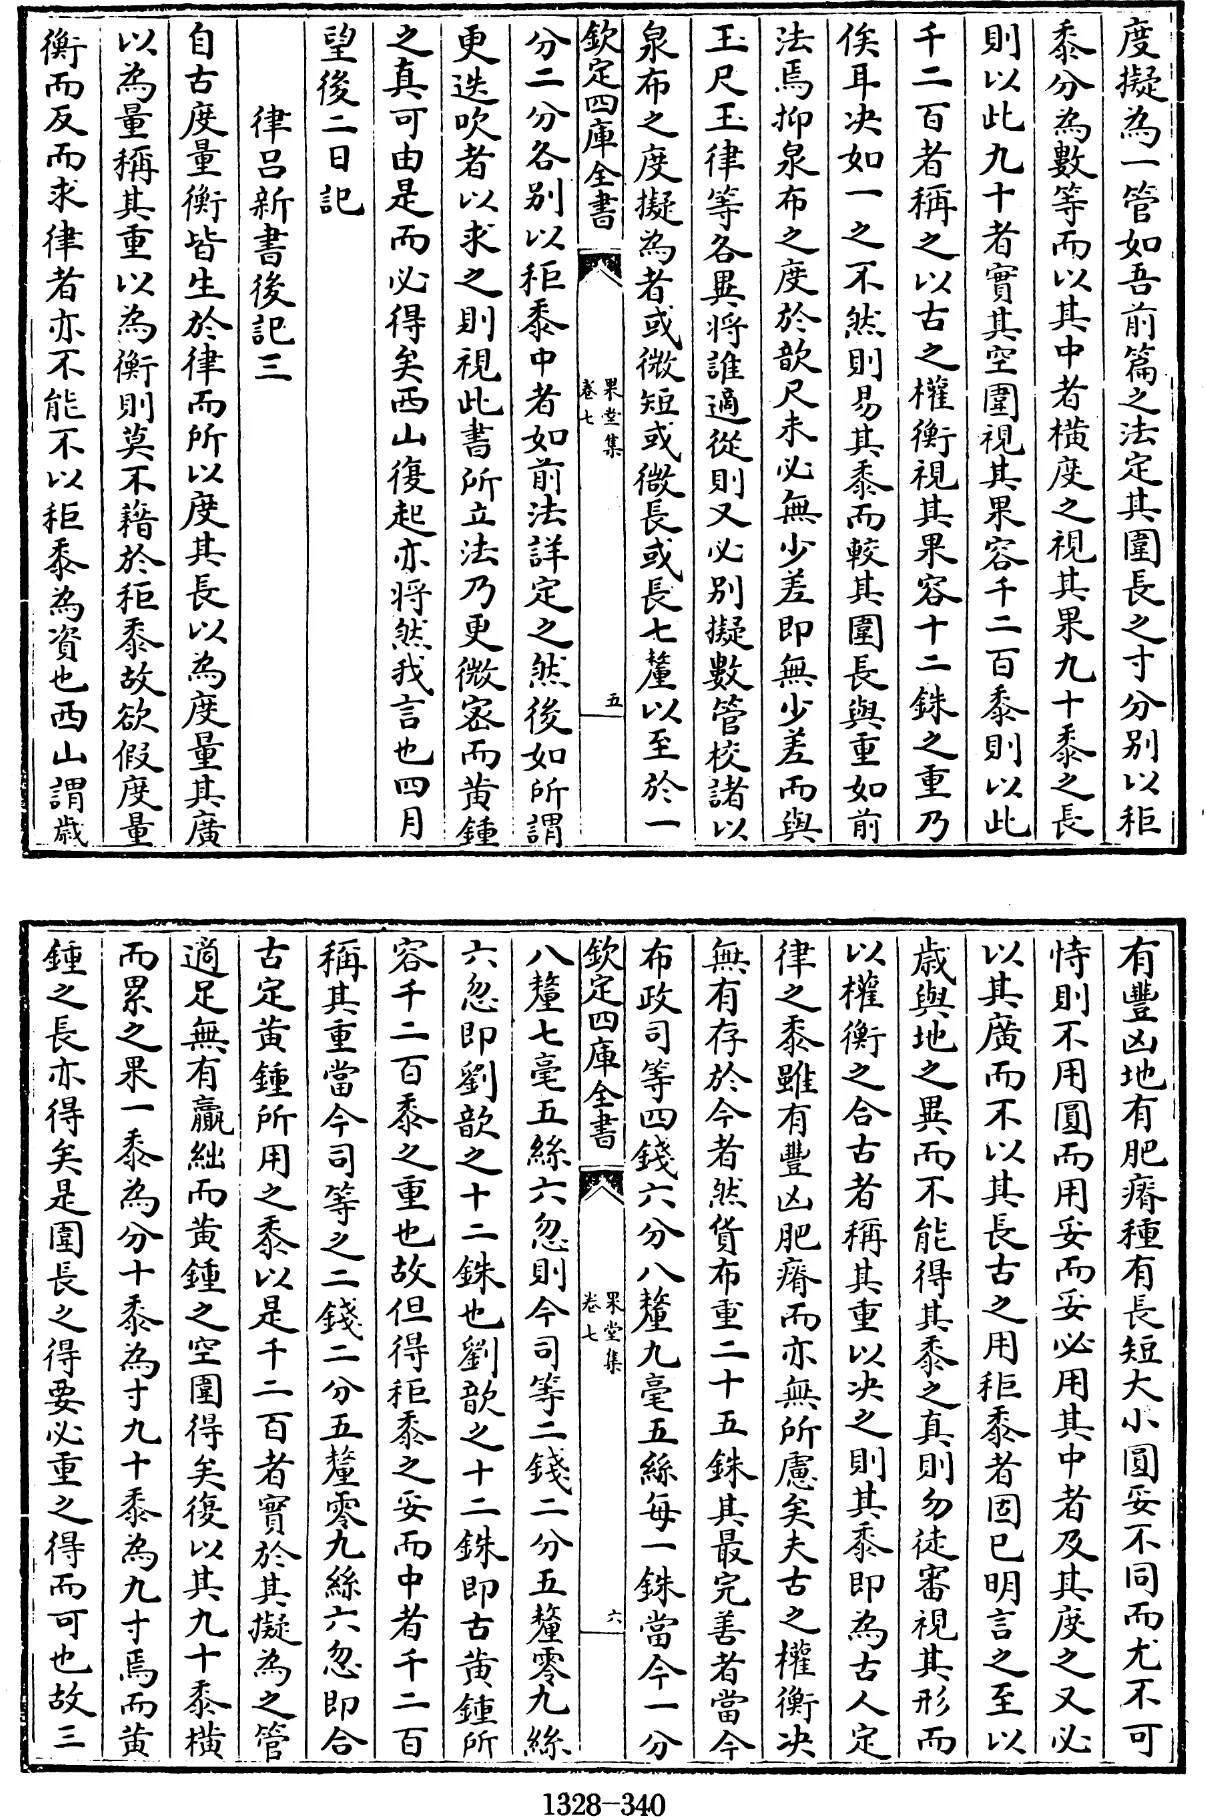 度擬為一管如吾前篇之法定其圍長之寸分別以秬
黍分為數等而以其中者橫度之視其果九十黍之長
則以此九十者實其空圍視其果容千二百黍則以此
千二百者稱之以古之權衡視其果容十二銖之重乃
俟耳决如一之不然則易其黍而較其圍長與重如前
法焉抑泉布之度於歆尺未必無少差即無少差而與
玉尺玉律等各異將誰適從則又必别擬數管校諸以
泉布之度擬為者或微短或微長或長七釐以至於一
欽定四庫全書
果堂集
卷七
五
分二分各别以秬黍中者如前法詳定之然後如所謂
更迭吹者以求之則視此書所立法乃更微密而黄鍾
之真可由是而必得矣西山復起亦將然我言也四月
望後二日記
律呂新書後記三
自古度量衡皆生於律而所以度其長以為度量其廣
以為量稱其重以為衡則莫不藉於秬黍故欲假度量
衡而反而求律者亦不能不以秬黍為資也西山謂歲
有豐凶地有肥瘠種有長短大小圓妥不同而尤不可
恃則不用圓而用妥而妥必用其中者及其度之又必
以其廣而不以其長古之用秬黍者固已明言之至以
歲與地之異而不能得其黍之真則勿徒審視其形而
以權衡之合古者稱其重以决之則其黍即為古人定
律之黍雖有豐凶肥瘠而亦無所慮矣夫古之權衡决
無有存於今者然貨布重二十五銖其最完善者當今
布政司等四錢六分八釐九毫五絲每一銖當今一分
欽定四庫全書
果堂集
卷七
六
八釐七毫五絲六忽則今司等二錢二分五釐零九絲
六忽即劉歆之十二銖也劉歆之十二銖即古黄鍾所
容千二百黍之重也故但得秬黍之妥而中者千二百
稱其重當今司等之二錢二分五釐零九絲六忽即合
古定黄鍾所用之黍以是千二百者實於其擬為之管
適足無有贏絀而黄鍾之空圍得矣復以其九十黍橫
而累之果一黍為分十黍為寸九十黍為九寸焉而黄
鍾之長亦得矣是圍長之得要必重之得而可也故三
1328-340